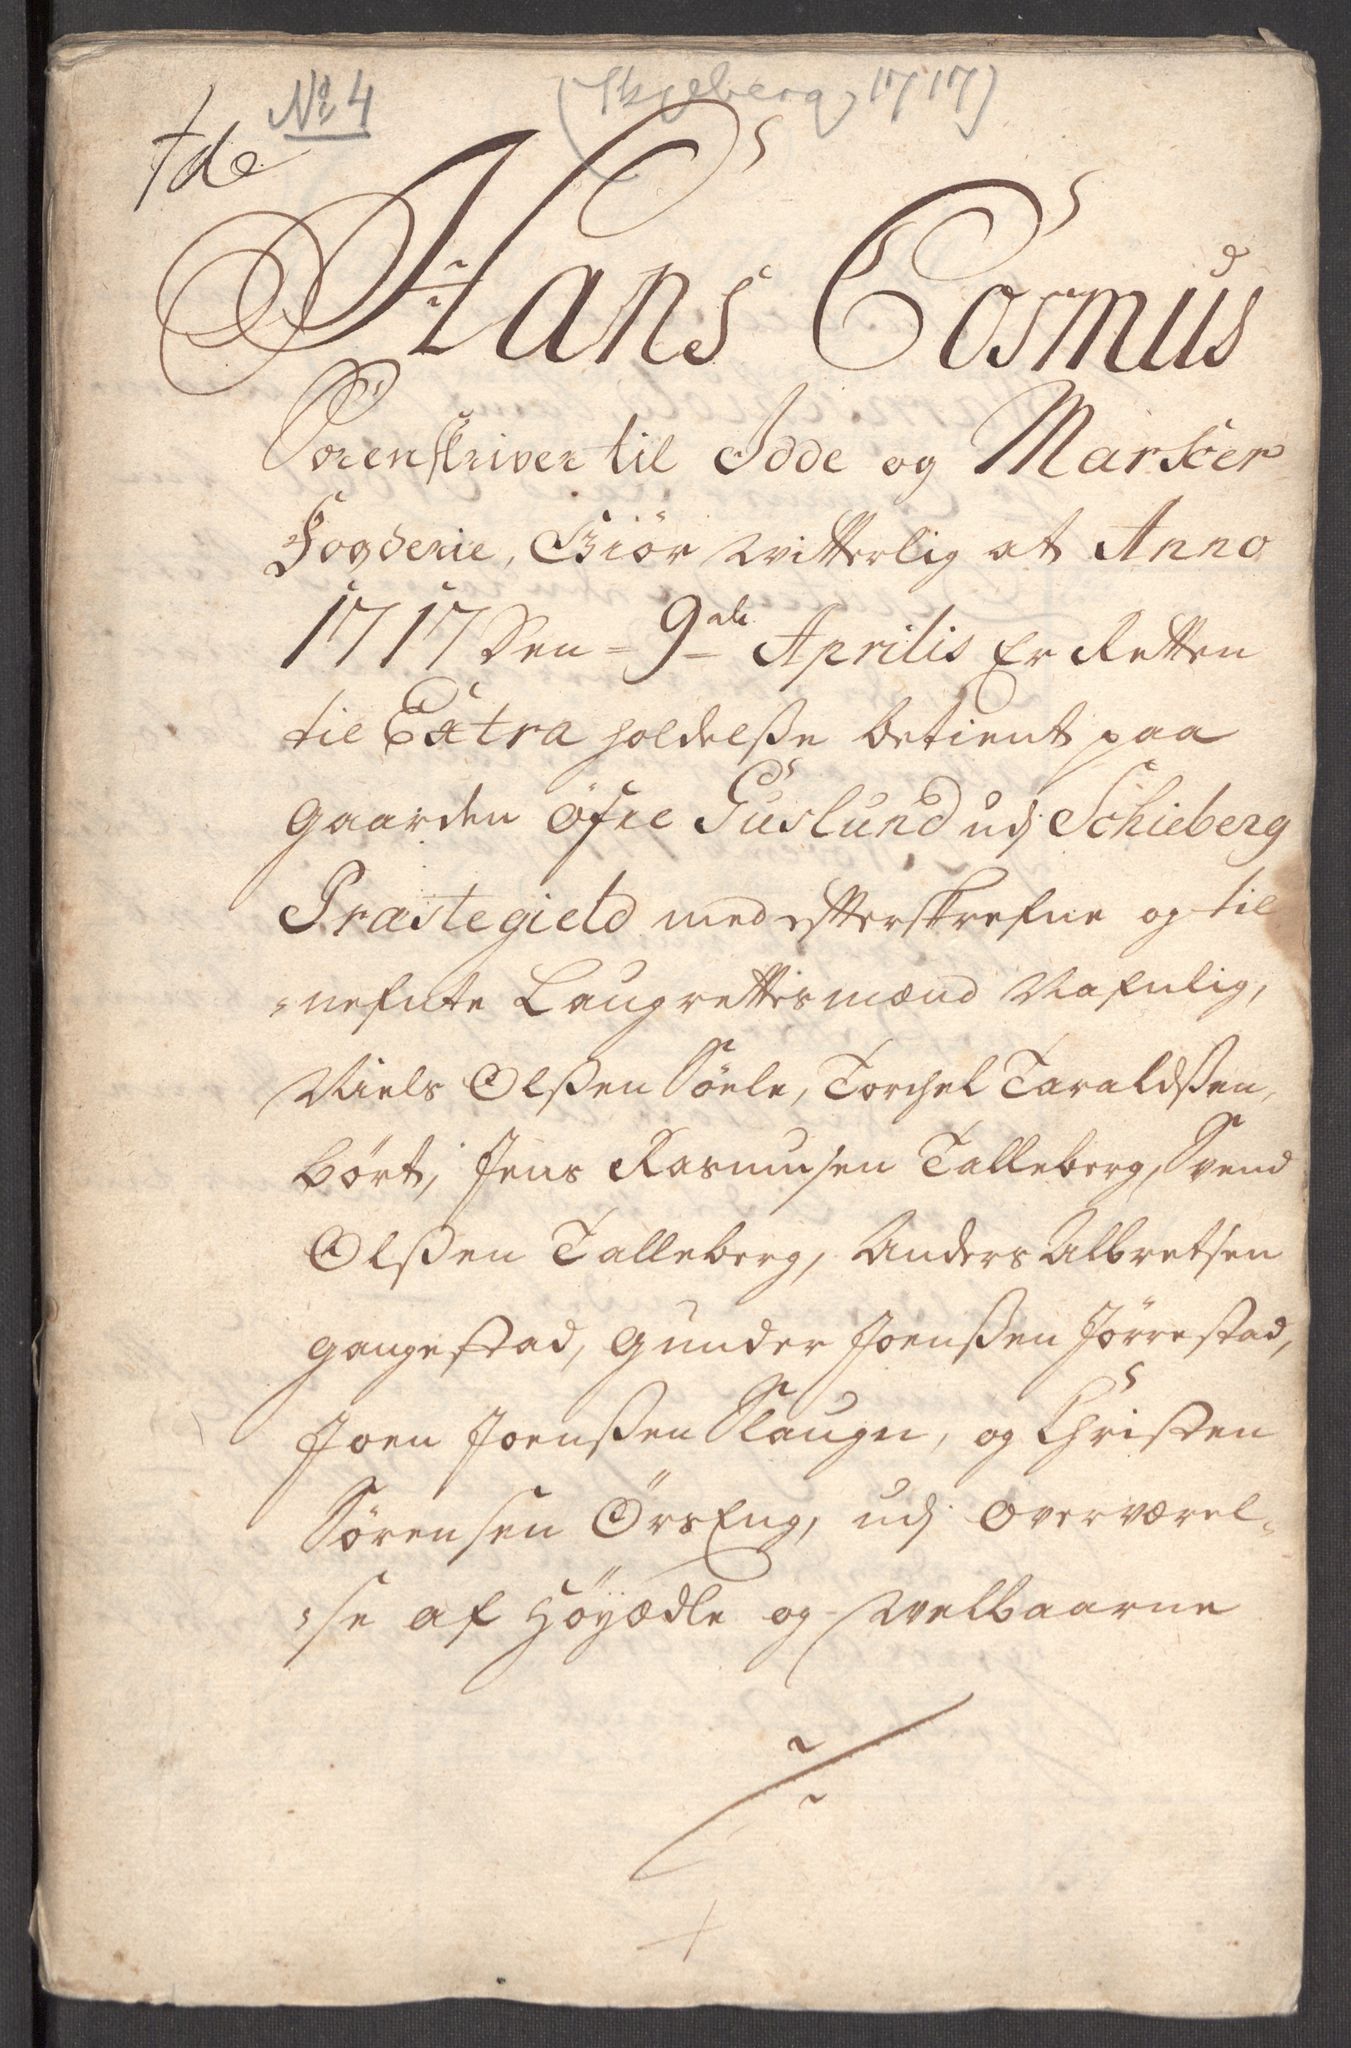 No 4 (Skjeberg, 1717)
Hans Cosmus
Sorenskriver til Idde og Marker
Fogderie, Giör Witterlig at Anno
1717 den 9de Aprilis Er Retten
til Extra holdelße betient paa
gaarden öfre Guslund udj Schieberg
Præstegield med efterskrefne og til
=nefnte Laugrettismænd Nafnlig,
Niels Olßen Söele, Torchel Taraldßen
Hört, Jens Rasmusen Talleberg, Svend
Olßen Talleberg, Anders Albretsen
gangestad, Gunder Joenßen Jörrestad,
Joen Joenßen Slaugn, og Christen
Sörensen ÖrsEng, udj overværel=
=se af Höyædle og Welbaarne